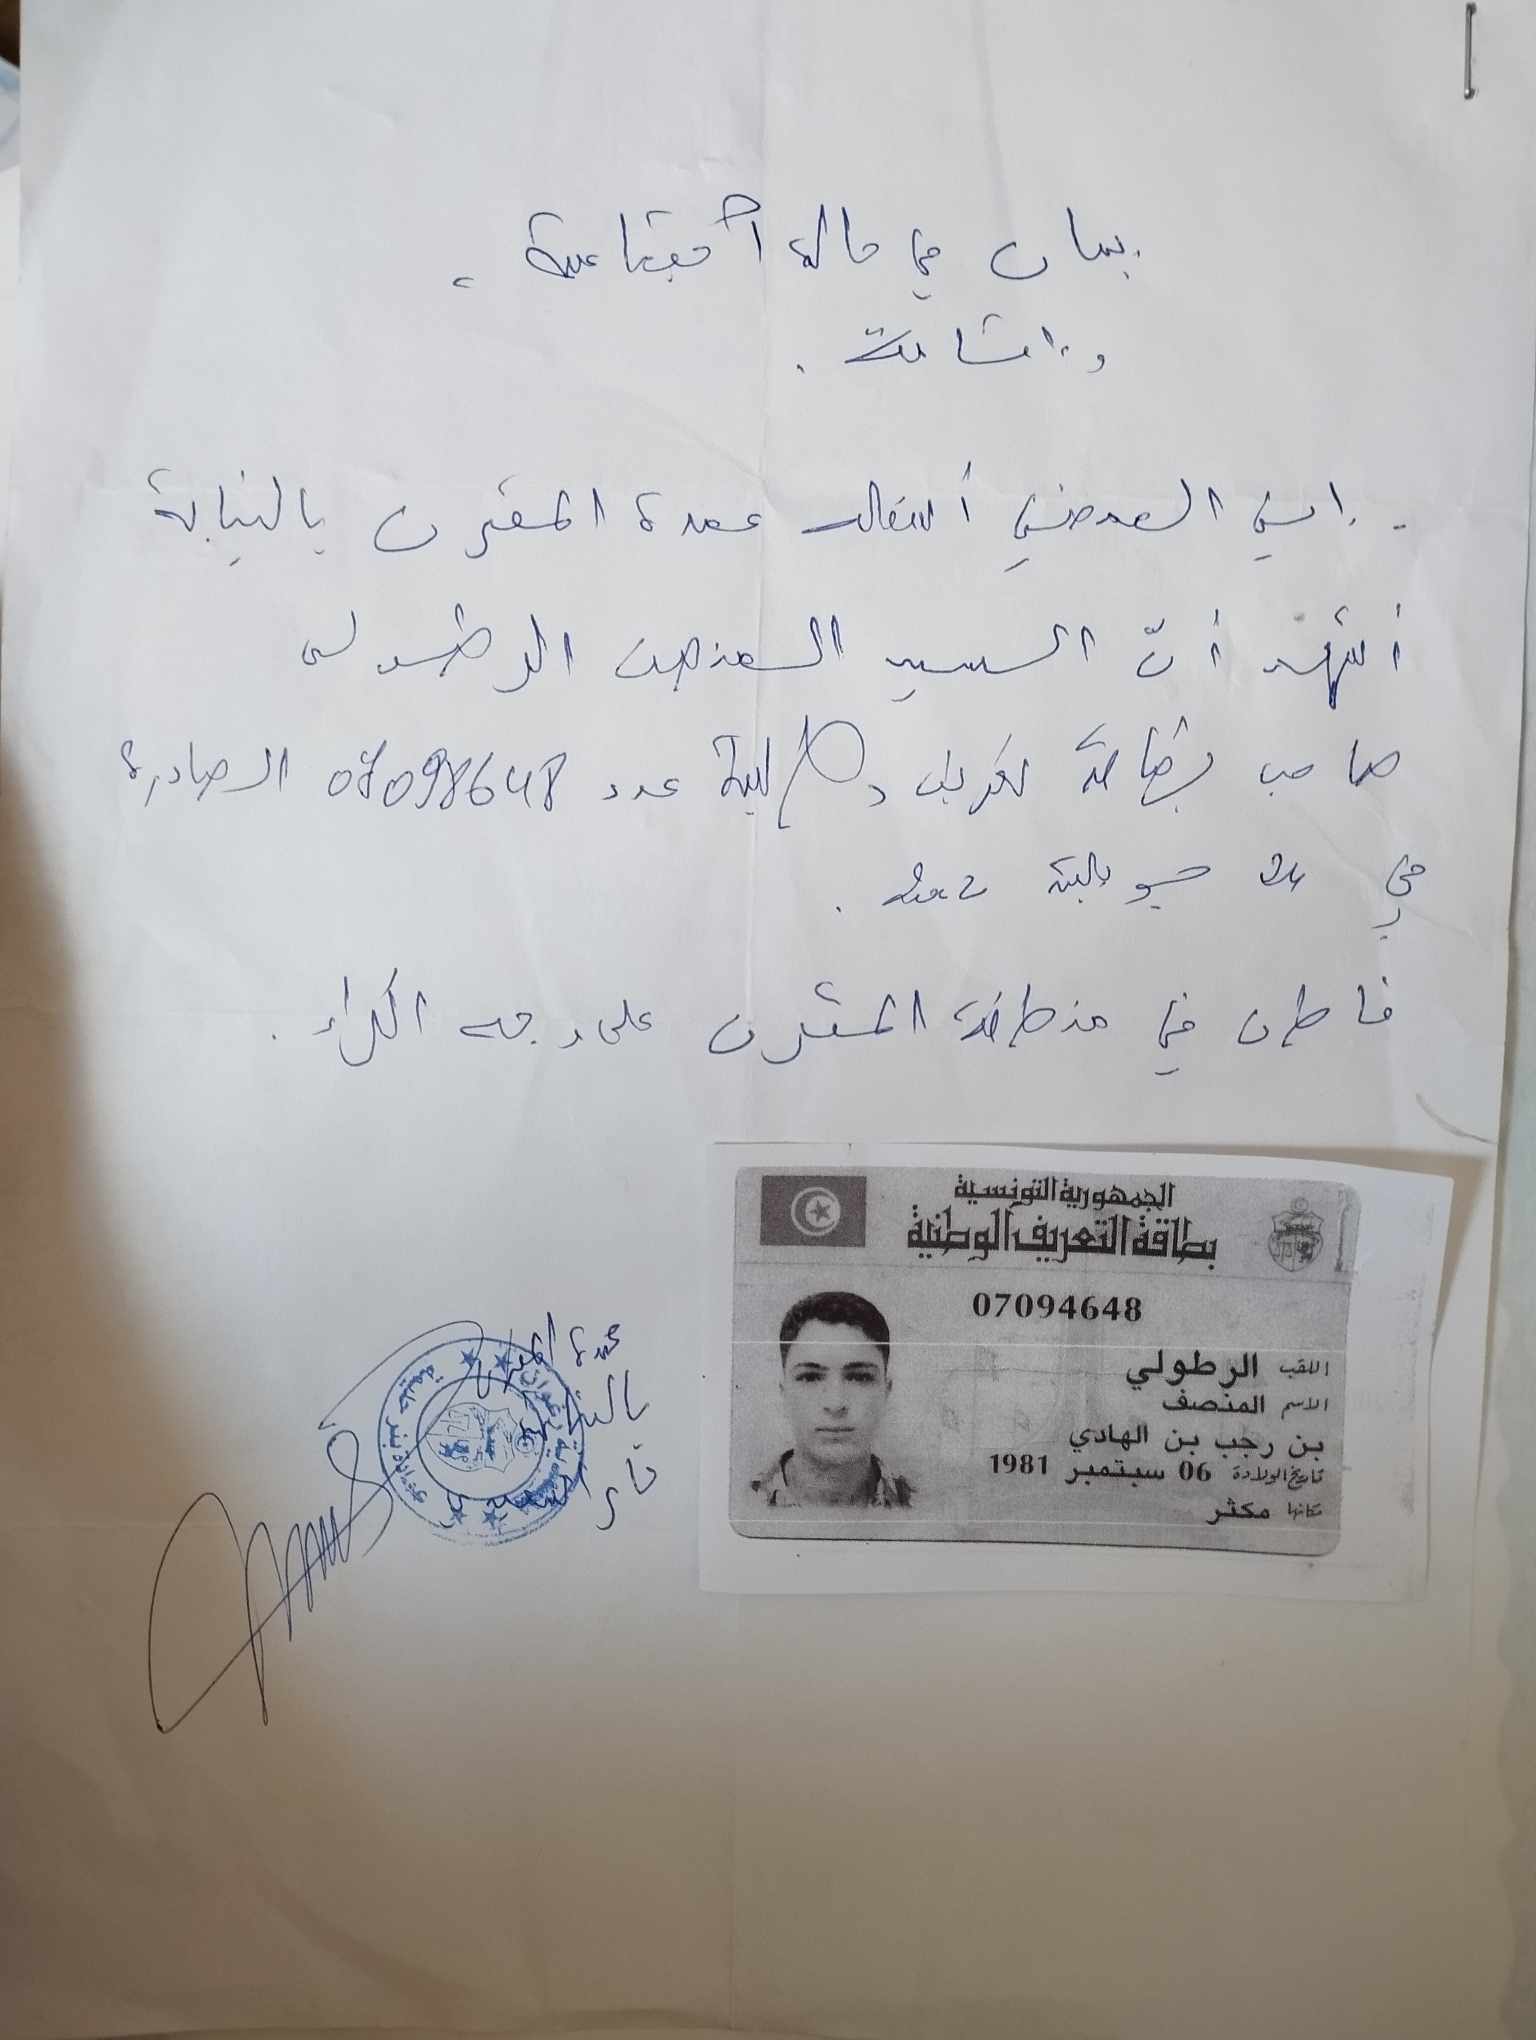 بيان في حالة اجتماعية
و اقامة .
- إني الممضي أسفله عمدة المقرن بالنيابة
أشهد أنّ السيد المنصف الرطولي
صاحب بطاقة تعريف وطنية عدد 07098648 الصادرة
في 24 جويلية
قاطن في منطقة المقرن على وجه الكراء .
الجمهورية التونسية
بطاقة التعريف الوطنية
07094648
اللقب الرطولي
الاسم المنصف
بن رجب بن الهادي
تاريخ الولادة 06 سبتمبر 1981
مكانها مكثر
عمدة المقرن
بالنيابة